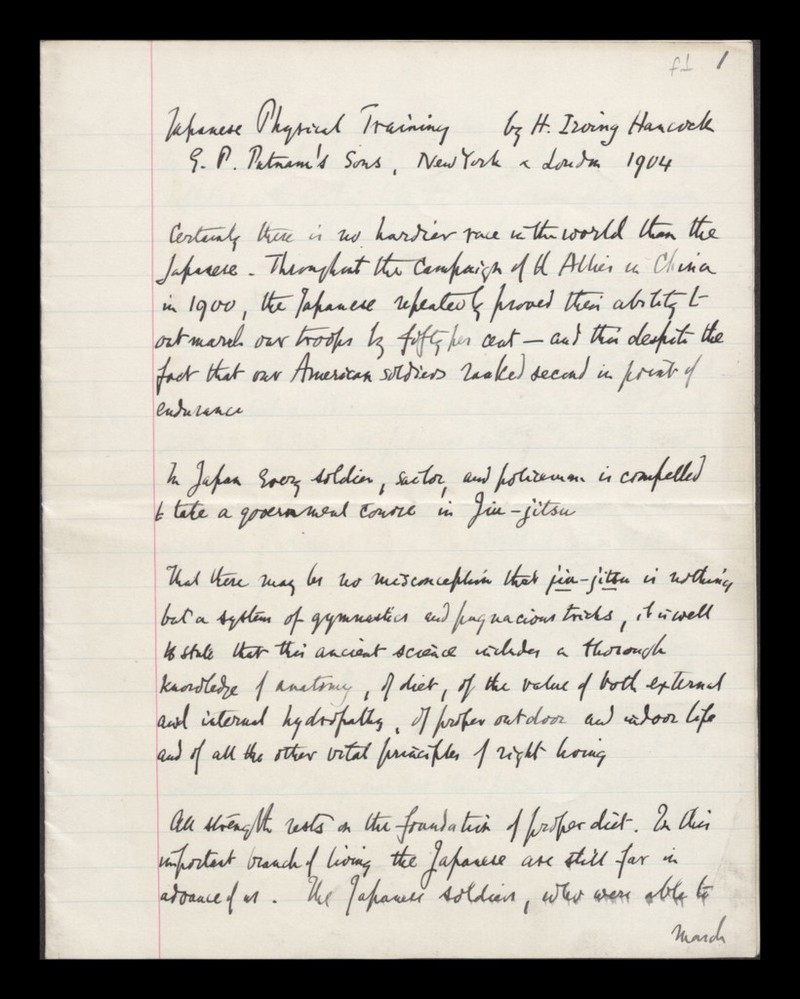 f1 1
Japanese Physical Training by H. Irving Hancock
G. P. Putnam's Sons, New York & London 1904
Certainly there is no hardier race in the world than the
Japanese. Throughout the campaign of the Allies in China
in 1900, the Japanese repeatedly proved their ability to
outmarch our troops by fifty per cent — and this despite the
fact that our American soldiers ranked second in point of
endurance
In Japan every soldier, sailor, and policeman is compelled
to take a government course in Jiu-jitsu
That there may be no misconception that jiu-jitsu is nothing
but a system of gymnastics and pugnacious tricks, it is well
to state that this ancient science includes a thorough
knowledge of anatomy, of diet, of the value of both external
and internal hydropathy, of proper outdoor and indoor life
and of all the other vital principles of right living
All strength rests on the foundation of proper diet. In this
important branch of living the Japanese are still far in
advance of us. The Japanese soldiers, who were able to
march